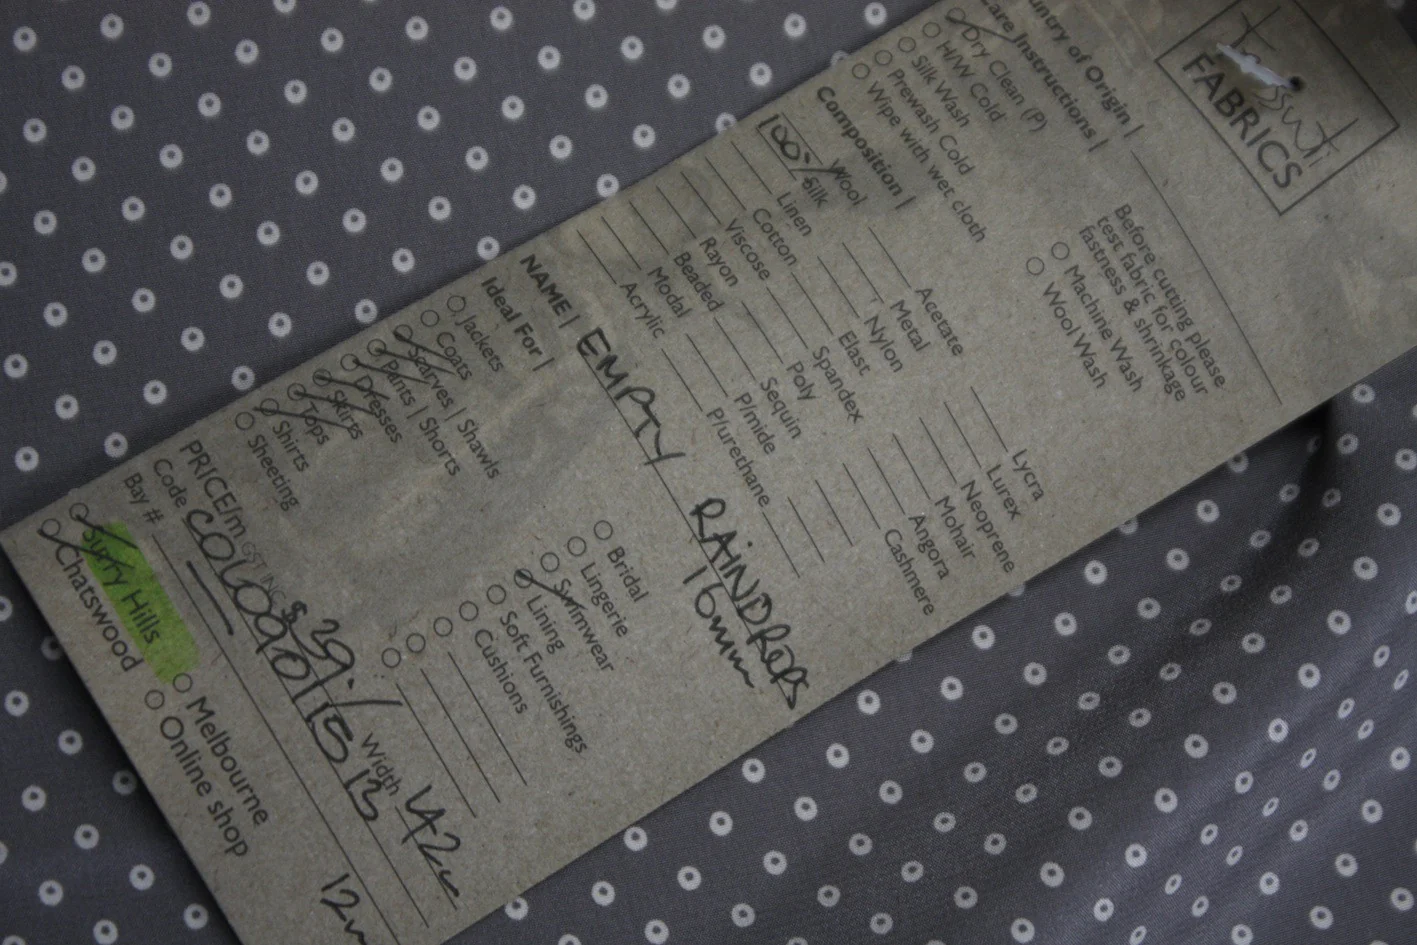 Tessuti
FABRICS
Country of Origin |
Care Instructions |
Dry Clean (P)
H/W Cold
Silk Wash
Prewash Cold
Wipe with wet cloth
Before cutting please
test fabric for colour
fastness & shrinkage
Machine Wash
Wool Wash
Composition |
Wool
100% Silk
Linen
Cotton
Viscose
Rayon
Beaded
Modal
Acrylic
Acetate
Metal
Nylon
Elast
Spandex
Poly
Sequin
P/mide
P/urethane
Lycra
Lurex
Neoprene
Mohair
Angora
Cashmere
NAME | EMPTY RAINDROPS
16mm
Ideal For |
Jackets
Coats
Scarves | Shawls
Pants | Shorts
Dresses
Skirts
Tops
Shirts
Sheeting
Bridal
Lingerie
Swimwear
Lining
Soft Furnishings
Cushions
PRICE/m GST INC $29.- Width
Code
Bay #
Surry Hills
Chatswood
Melbourne
Online shop